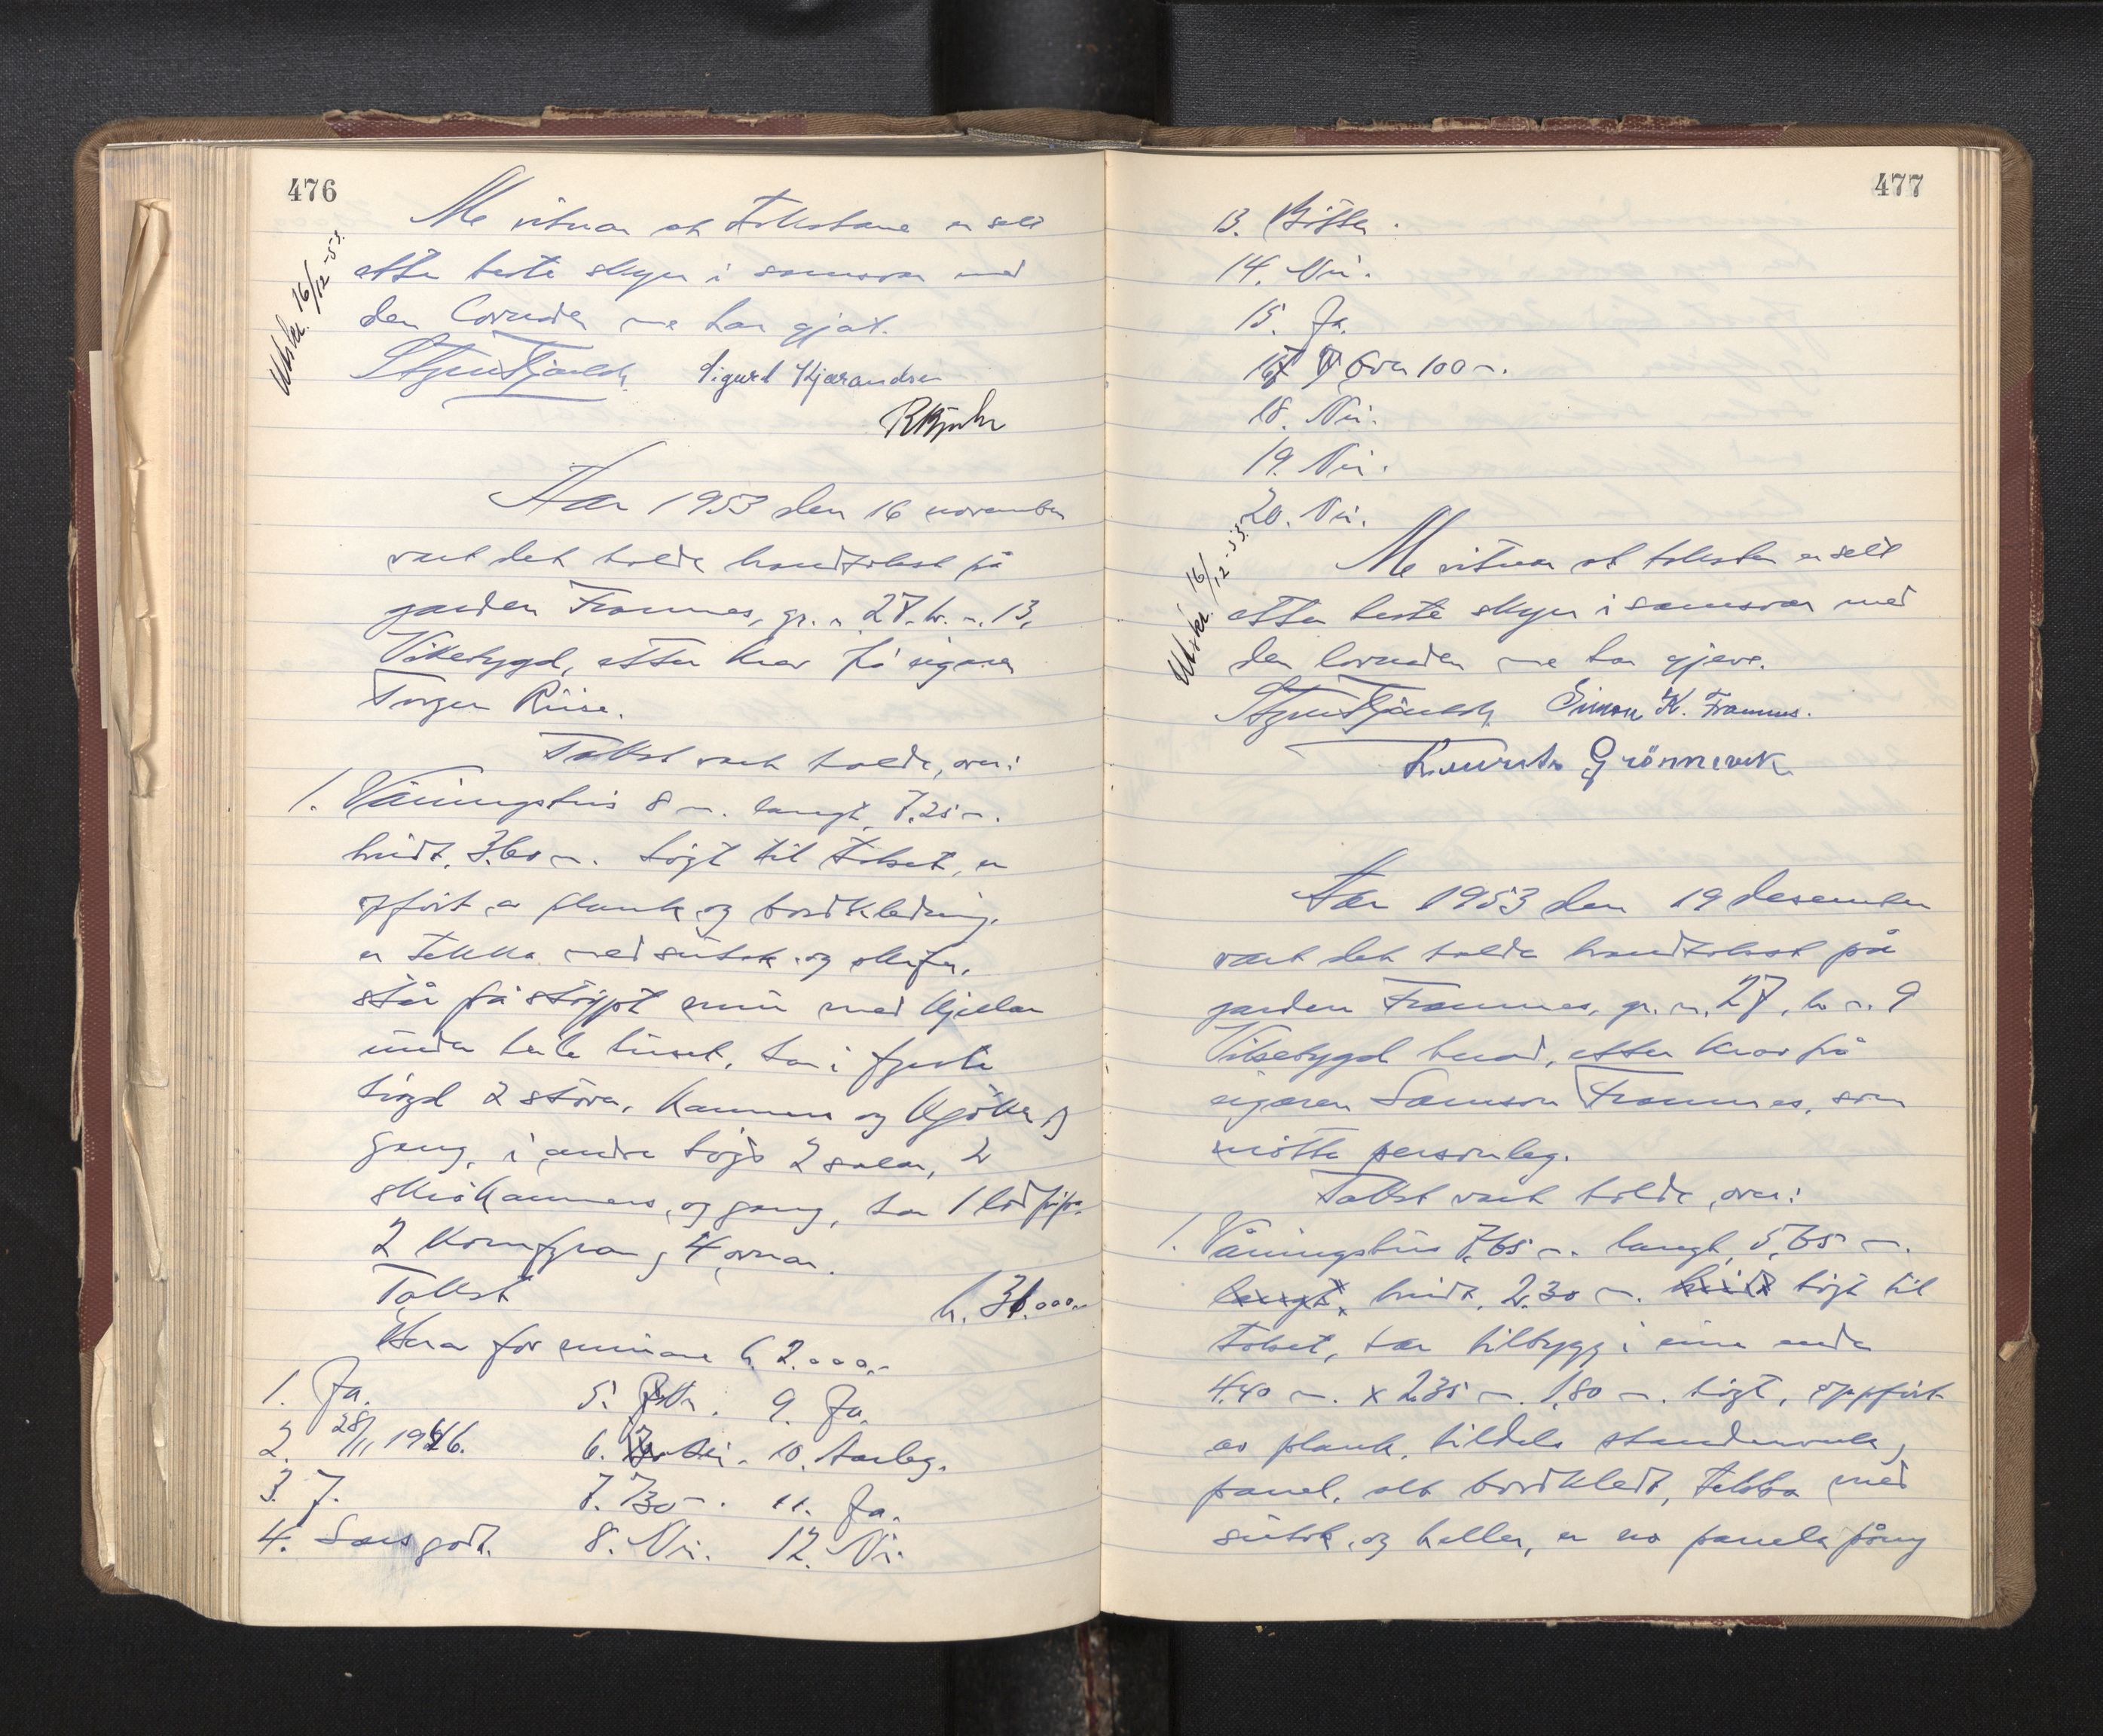 476
Me vitnar at takstane er sett
etter beste skyn i samsvar med
den lovnaden me har gjeve.
Utskr. 16/12-53.
Sigurd Kjærandsen
Aar 1953 den 16 november
vart det halde brandtakst på
garden Framnes, gr. n. 27. br. n. 13,
Vikebygd, etter krav frå eigaren
Torger Riise.
Takst vart halde, over:
1. Våningshus 8 m. langt, 7.25 m.
breidt, 3.60 m. högt til takset, er
oppfört av plank og bordkledning,
er tekka med sutak og skifer,
står på stöypt mur med kjellar
under heile huset, har i fyrste
högd 2 stover, kammers og kjöken og
gang, i andre högd 2 salar, 2
skråkammers, og gang, har 1 lodpipe,
2 komfyrar, 4 omnar.
Takst kr. 31.000.-
Herav for murane kr. 2.000.-
1. Ja. 5. 9. Ja.
2. 28/11 1946. 6. Nei. 10. Aarleg.
3. 7. 7. 730 m. 11. Ja.
4. Særs godt. 8. Nei. 12. Nei.
477
13. Bötte.
14. Nei.
15. Ja.
Over 100 m.
18. Nei.
19. Nei.
20. Nei.
Me vitnar at taksten er sett
etter beste skyn i samsvar med
den lovnaden me har gjeve.
Utskr. 16/12-53.
Simon K. Framnes.
Grönnevik
Aar 1953 den 19 desember
vart det halde brandtakst på
garden Framnes, gr. n. 27, br. n. 9
Vikebygd herad, etter krav frå
eigaren Samson Framnes, som
mötte personleg.
Takst vart halde, over:
1. Våningshus 7,65 m. langt, 5,65 m.
langt, breidt, 2.30 m. breidt högt til
takset, har tilbygg i eine enden
4.40 m. x 2.35 m. 1,80 m. högt, oppfört
av plank, tildels standerverk,
panel, alt bordkledt, tekka med
sutak, og heller, er no panela påny